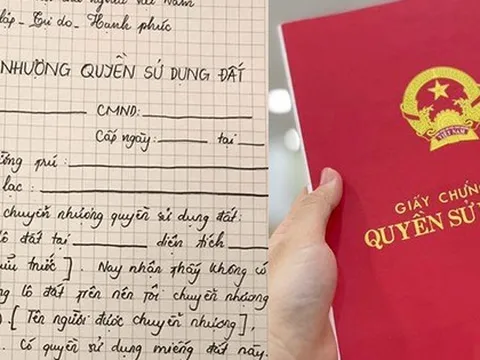 lập - Tự do - Hạnh phúc
NHƯỢNG QUYỀN SỬ DỤNG ĐẤT
CMND:
Cấp ngày: tại
ường trú :
lạc :
chuyển nhượng quyền sử dụng đất:
lô đất tại diện tích
ửu trước ] . Nay nhận thấy không có
ng lô đất trên nên tôi chuyển nhượng
) . [ Tên người được chuyển nhượng ] ,
. Có quyền sử dụng miếng đất này.
VIỆT NAM
GIẤY CHỨNG
QUYỀN SỬ